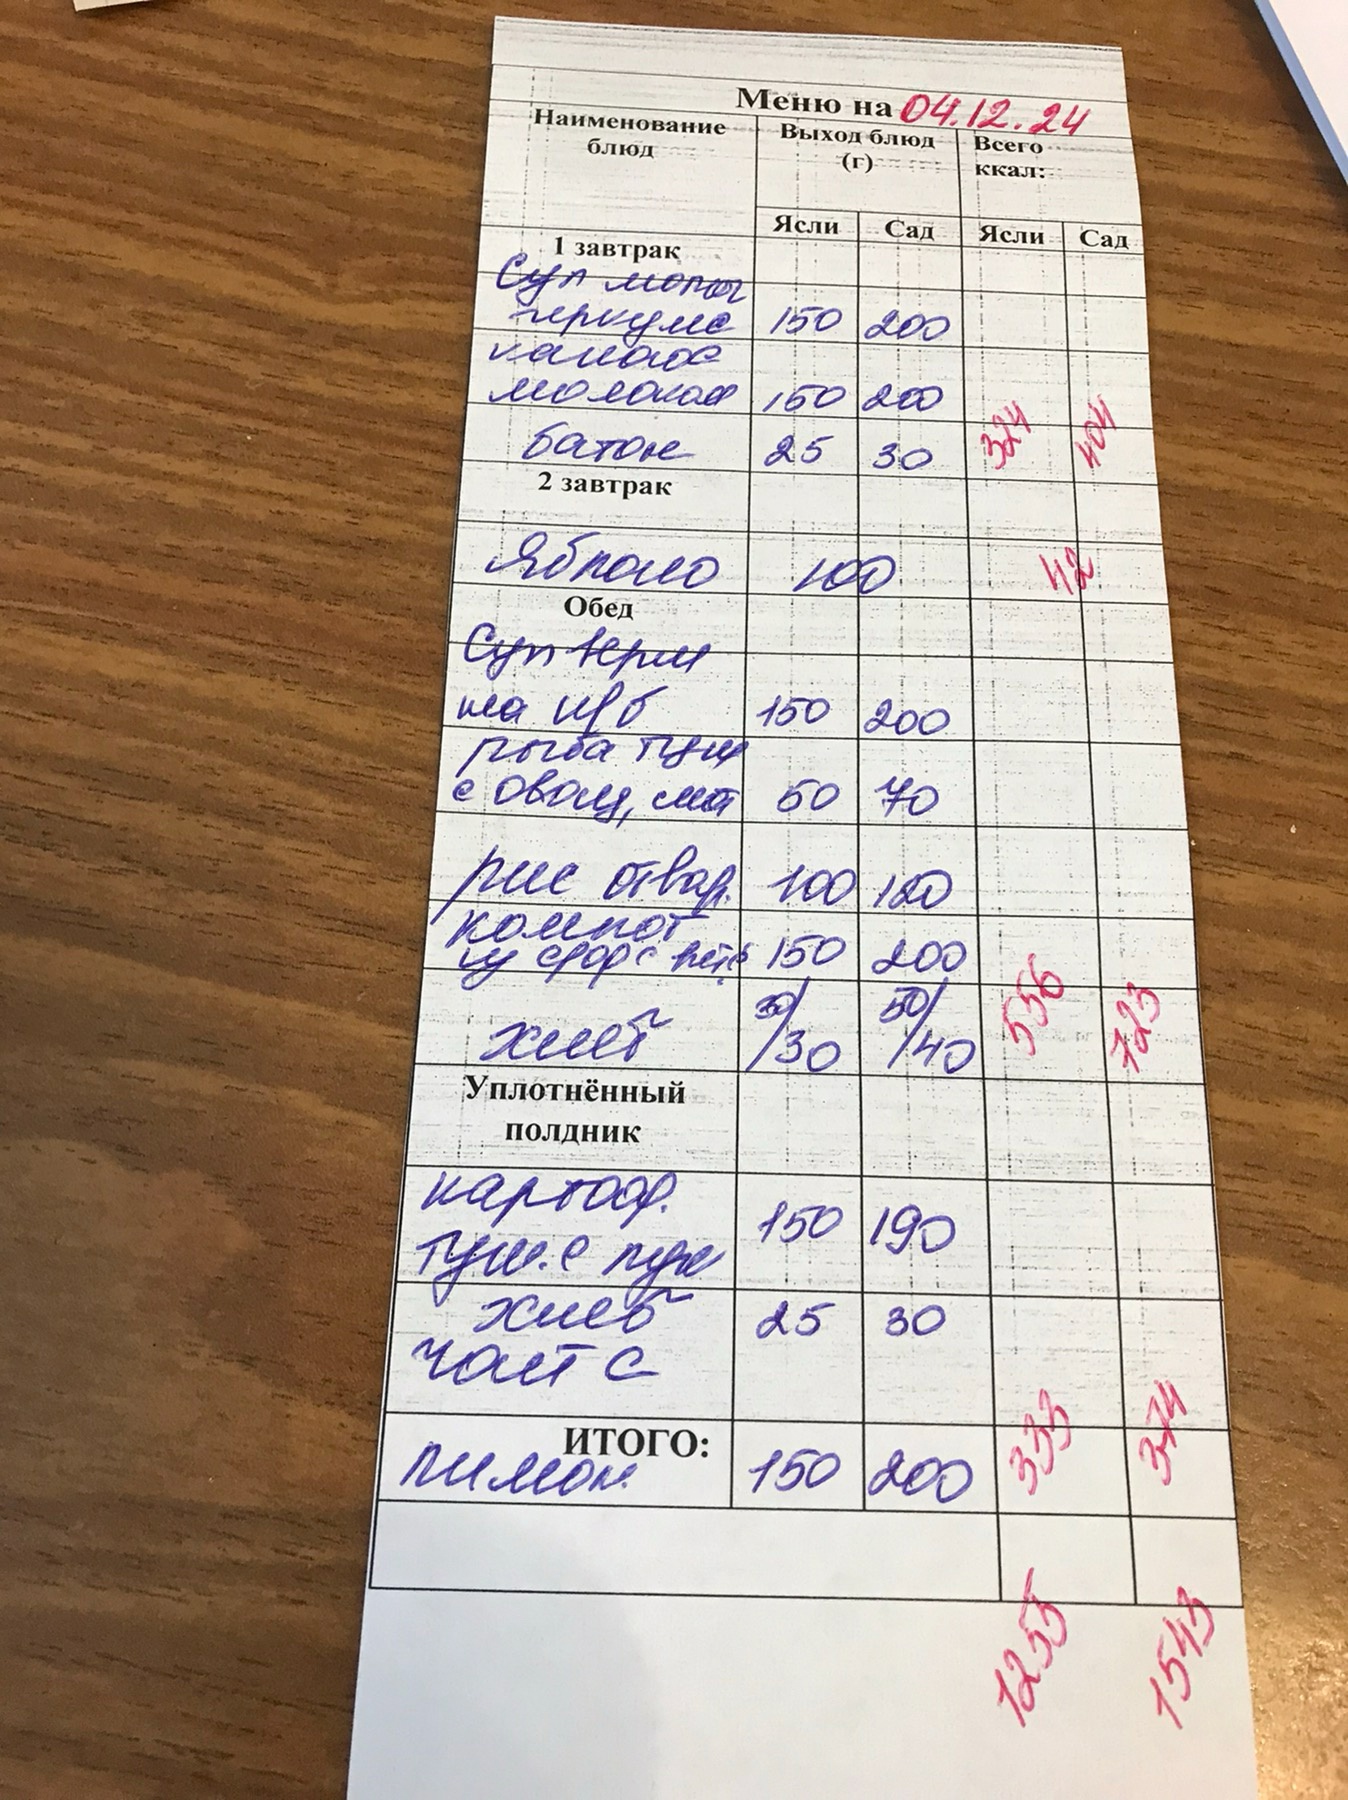 Меню на 04.12.24
Наименование блюд Выход блюд (г) Всего ккал:
Ясли Сад Ясли Сад
1 завтрак
Суп молоч
геркулес 150 200
какао с
молоком 150 200
батон 25 30 324 404
2 завтрак
Яблоко 100 42
Обед
Суп
на к/б 150 200
рыба туш
с овощ, 50 70
рис отвар. 100 120
компот
с/ф с вит с 150 200
хлеб 30/30 50/40 556 723
Уплотнённый
полдник
картоф.
туш. с лук 150 190
хлеб 25 30
чай с
ИТОГО:
лимон. 150 200 333 374
1255 1543